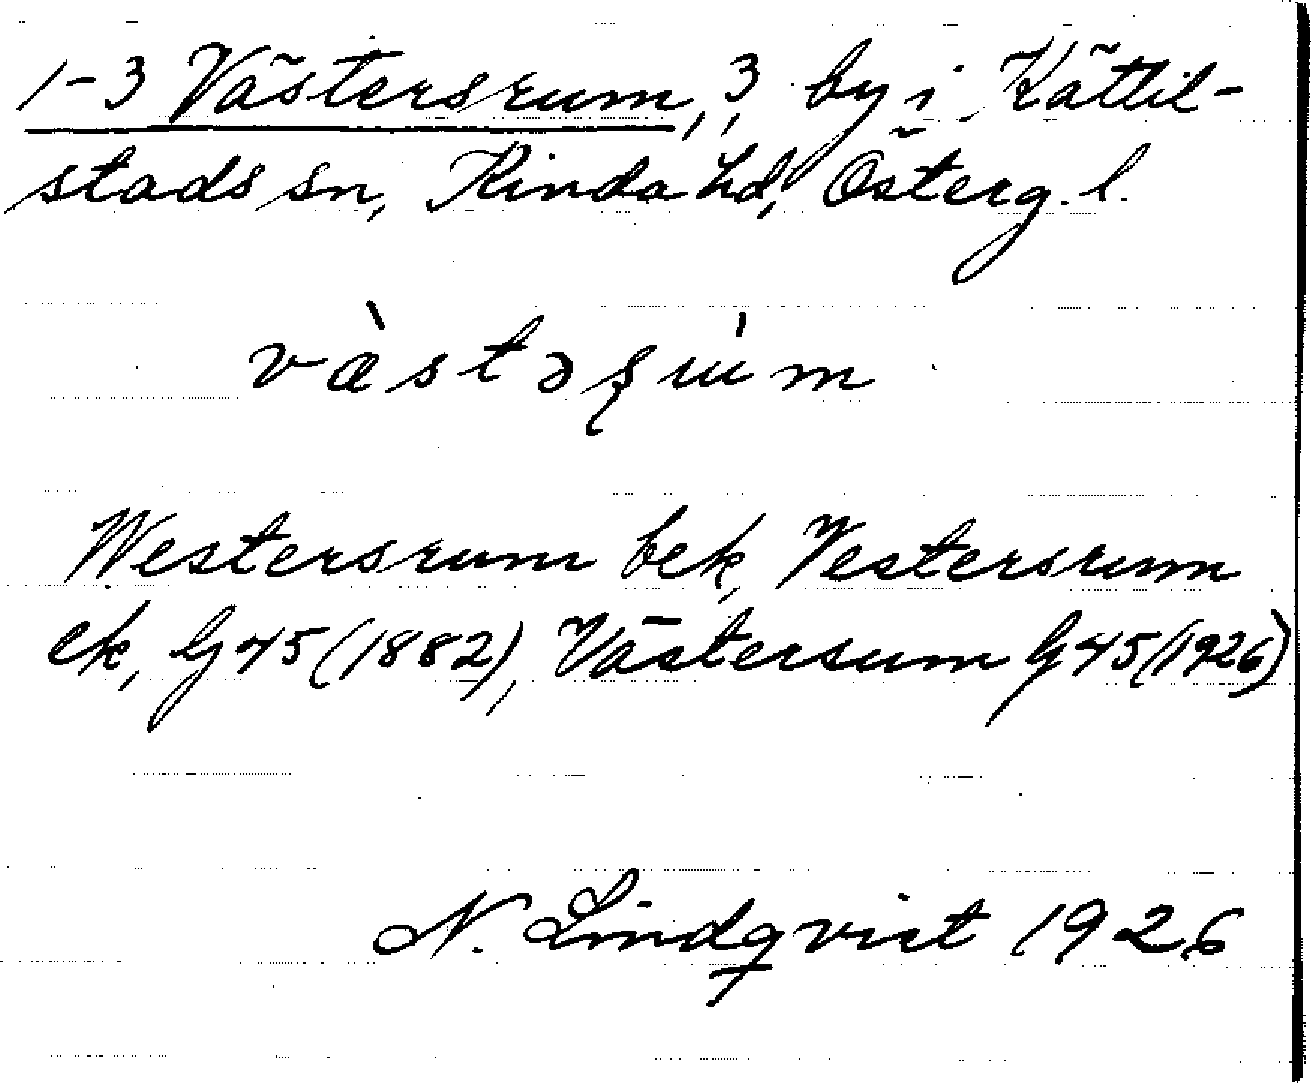 1-3 Västersrum, 3, by i Kättil-
stads sn, Kinda hd, Österg. l.
væ̀stəʂɯ́m
Westersrum bek, Vestersrum
ek, G 45 (1882), Västersum G 45 (1926)
N. Lindqvist 1926